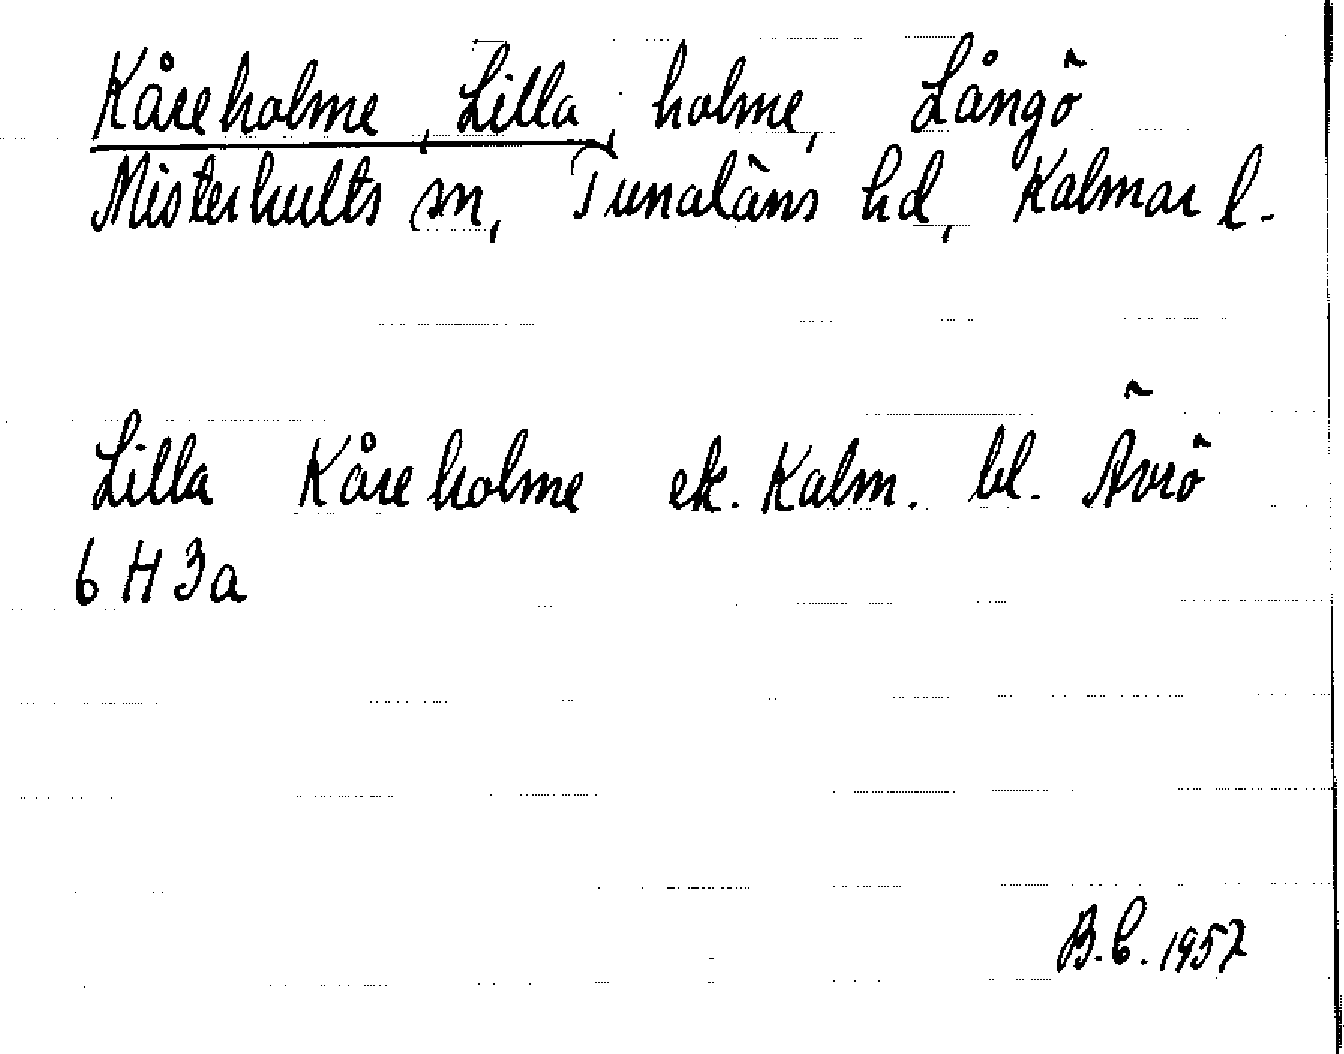 Kåreholme, Lilla, holme, Långö
Misterhults sn, Tunaläns hd, Kalmar l.
Lilla Kåreholme ek. Kalm. bl. Ävrö
6 H 3a
B.C. 1957